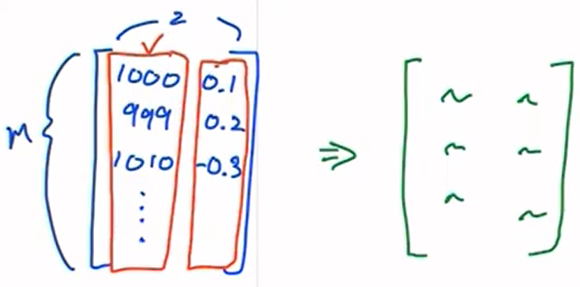 2
1000 0.1
999 0.2
m
1010 -0.3
⋮
⇒
~ ~
~ ~
~ ~